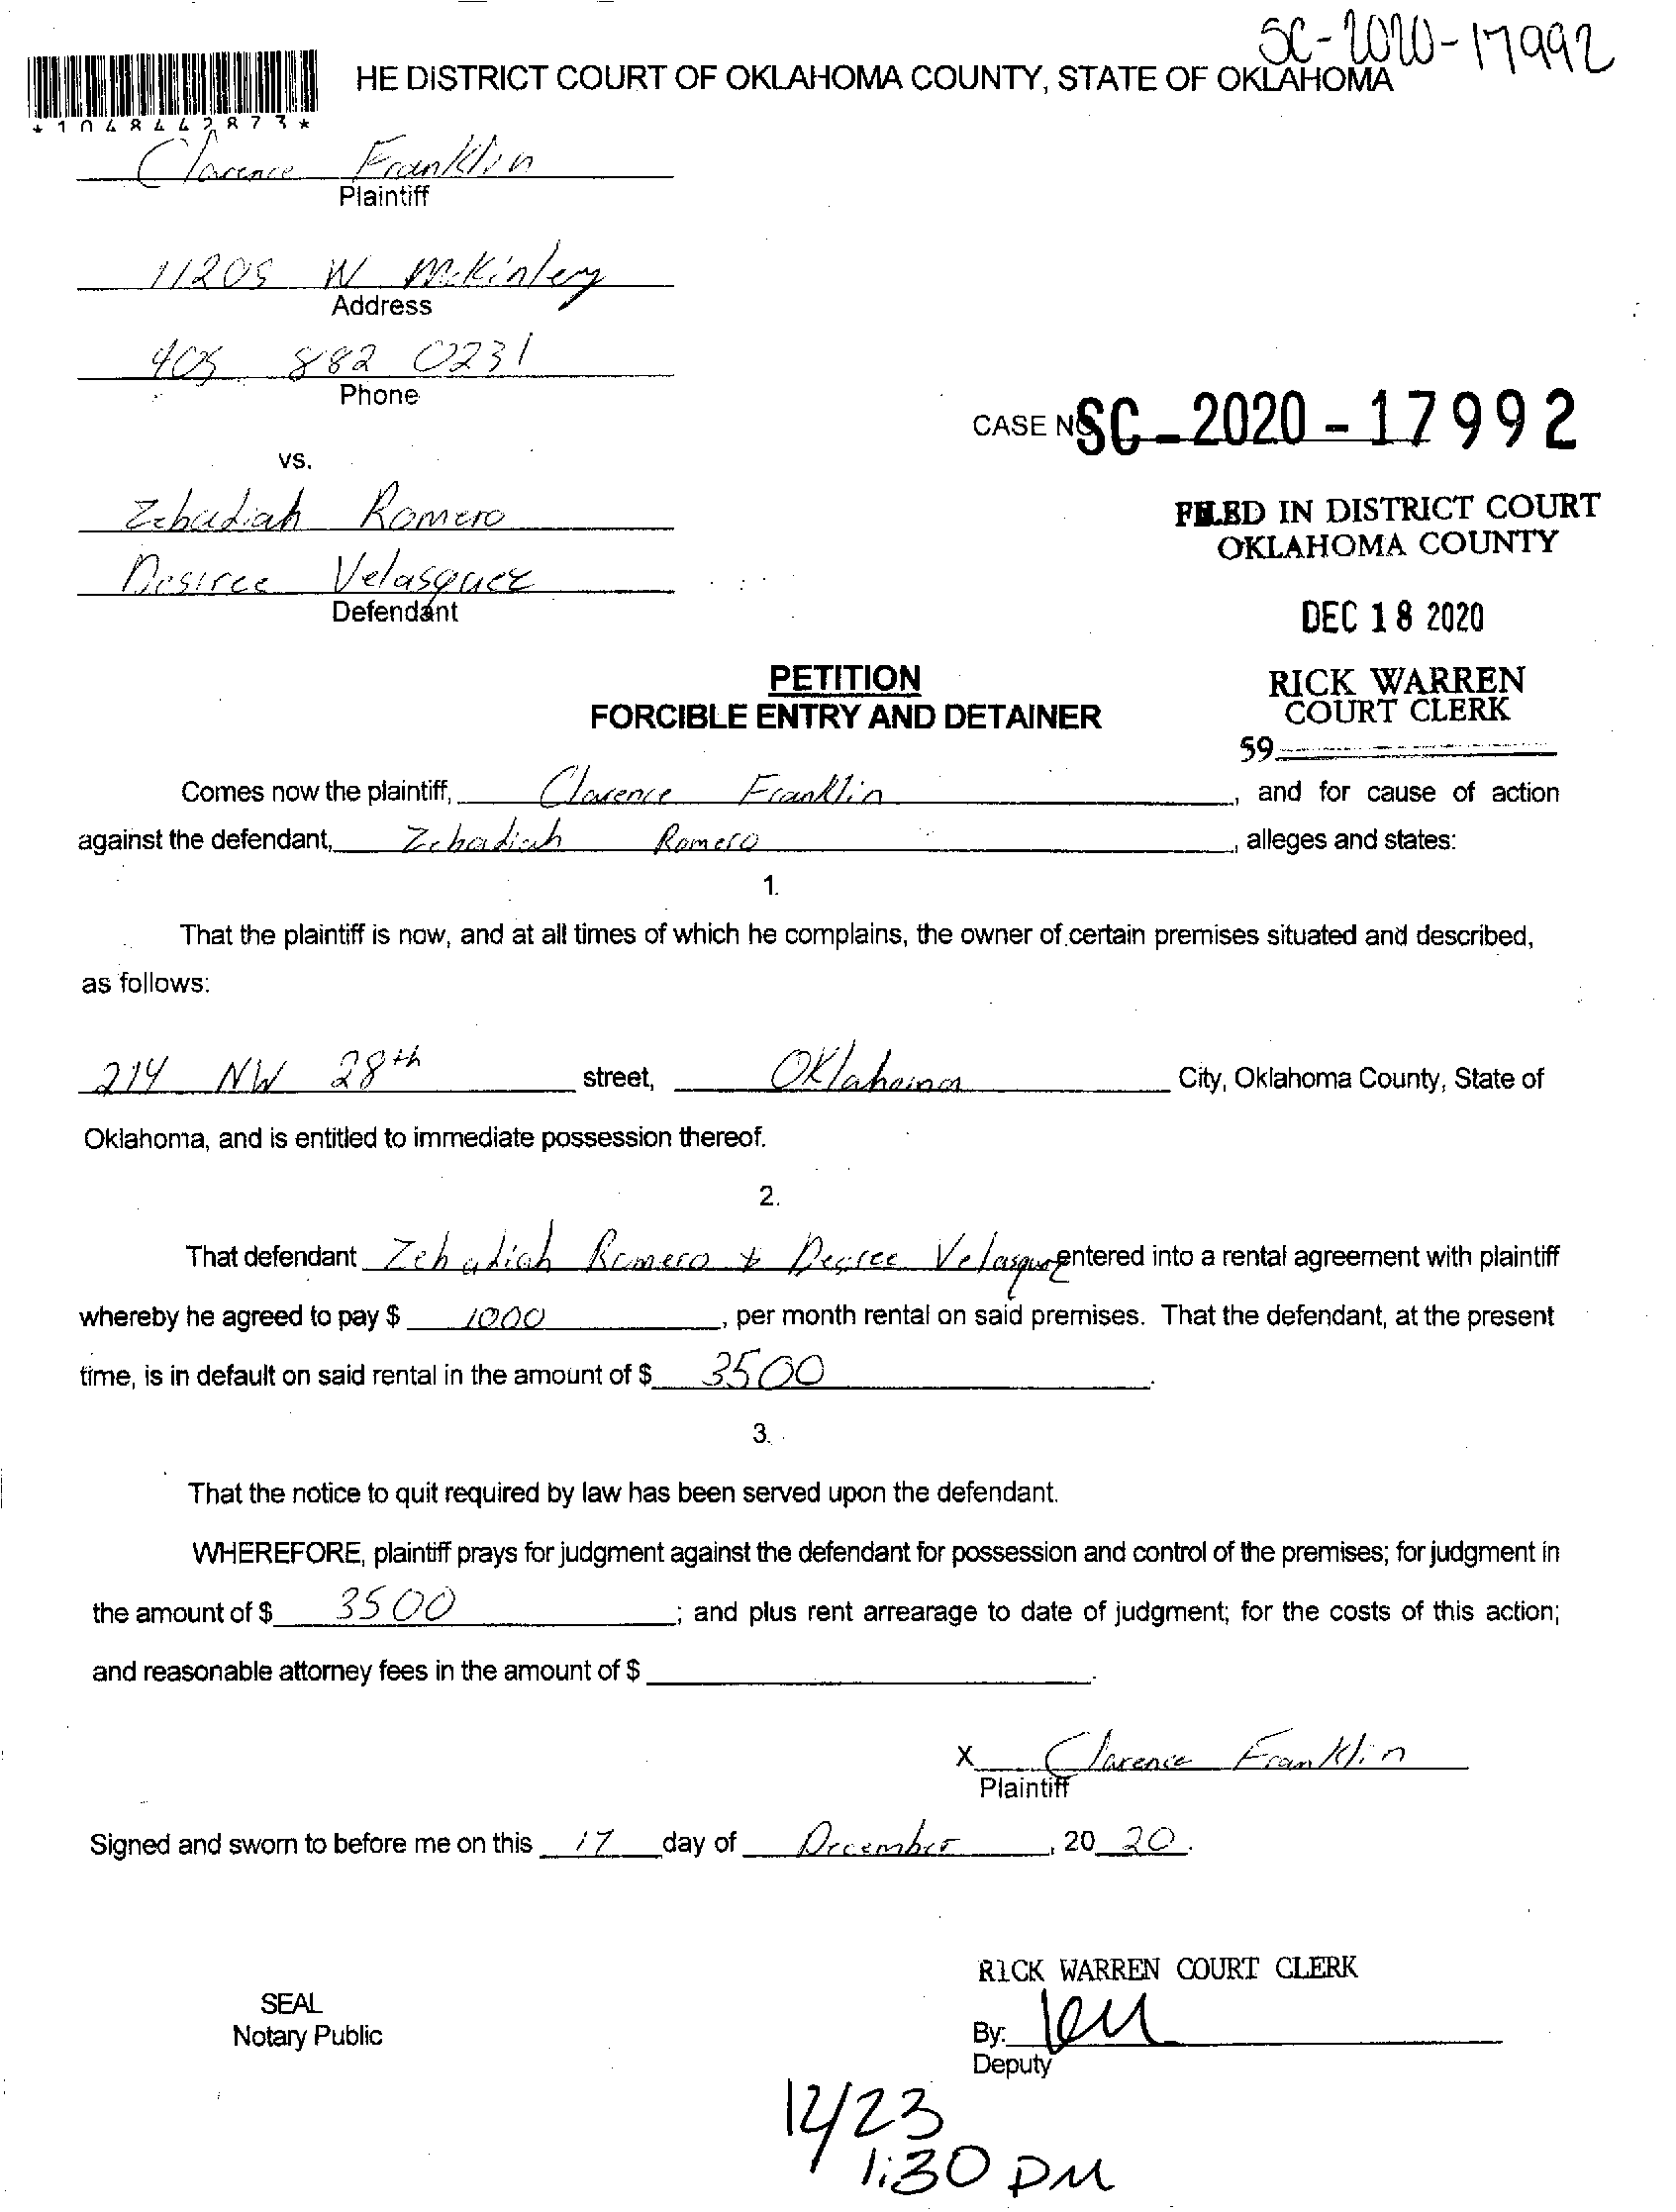 SC-2020-17992
HE DISTRICT COURT OF OKLAHOMA COUNTY, STATE OF OKLAHOMA
*1048442873*
Clarence Franklin
Plaintiff
11205 W McKinley
Address
405 882 0231
Phone
CASE NO SC-2020-17992
vs.
Zebadiah Romero
FILED IN DISTRICT COURT
OKLAHOMA COUNTY
Desiree Velasquez
Defendant
DEC 18 2020
PETITION
FORCIBLE ENTRY AND DETAINER
RICK WARREN
COURT CLERK
59
Comes now the plaintiff, Clarence Franklin, and for cause of action
against the defendant, Zebadiah Romero, alleges and states:
1.
That the plaintiff is now, and at all times of which he complains, the owner of certain premises situated and described,
as follows:
214 NW 28th street, Oklahoma City, Oklahoma County, State of
Oklahoma, and is entitled to immediate possession thereof.
2.
That defendant Zebadiah Romero & Desiree Velasquez entered into a rental agreement with plaintiff
whereby he agreed to pay $ 1000, per month rental on said premises. That the defendant, at the present
time, is in default on said rental in the amount of $ 3500.
3.
That the notice to quit required by law has been served upon the defendant.
WHEREFORE, plaintiff prays for judgment against the defendant for possession and control of the premises; for judgment in
the amount of $ 3500; and plus rent arrearage to date of judgment; for the costs of this action;
and reasonable attorney fees in the amount of $ .
X Clarence Franklin
Plaintiff
Signed and sworn to before me on this 17 day of December, 20 20.
RICK WARREN COURT CLERK
SEAL
Notary Public
By:
Deputy
12/23
1:30 PM